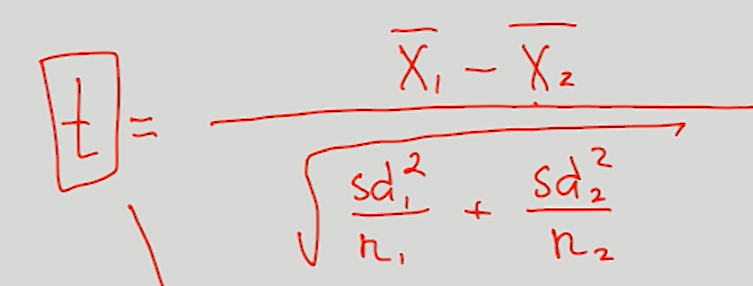 t = (X̄₁ − X̄₂) / √(sd₁²/n₁ + sd₂²/n₂)